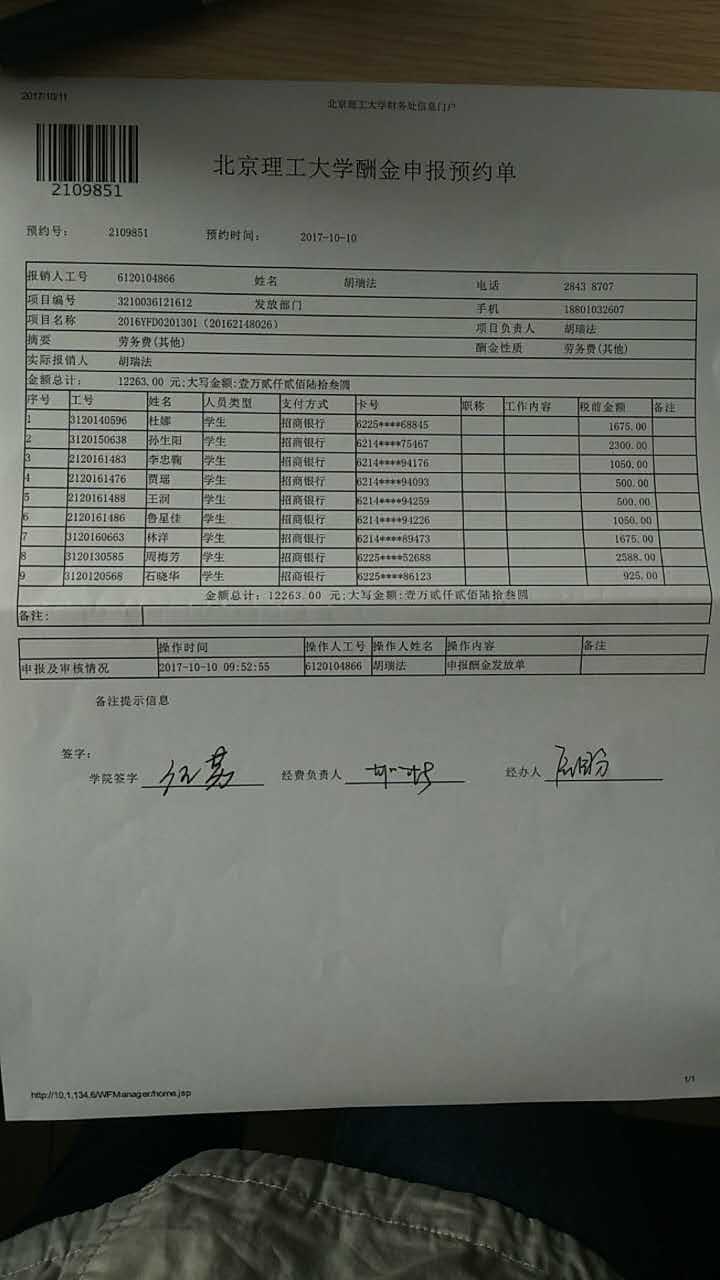 2017/10/11 北京理工大学财务处信息门户
2109851
北京理工大学酬金申报预约单
预约号: 2109851 预约时间: 2017-10-10
报销人工号 6120104866 姓名 胡瑞法 电话 2843 8707
项目编号 3210036121612 发放部门 手机 18801032607
项目名称 2016YFD0201301（20162148026） 项目负责人 胡瑞法
摘要 劳务费(其他) 酬金性质 劳务费(其他)
实际报销人 胡瑞法
金额总计: 12263.00 元;大写金额:壹万贰仟贰佰陆拾叁圆
序号 工号 姓名 人员类型 支付方式 卡号 职称 工作内容 税前金额 备注
1 3120140596 杜娜 学生 招商银行 6225****68845 1675.00
2 3120150638 孙生阳 学生 招商银行 6214****75467 2300.00
3 2120161483 李忠鞠 学生 招商银行 6214****94176 1050.00
4 2120161476 贾瑶 学生 招商银行 6214****94093 500.00
5 2120161488 王润 学生 招商银行 6214****94259 500.00
6 2120161486 鲁星佳 学生 招商银行 6214****94226 1050.00
7 3120160663 林洋 学生 招商银行 6214****89473 1675.00
8 3120130585 周梅芳 学生 招商银行 6225****52688 2588.00
9 3120120568 石晓华 学生 招商银行 6225****86123 925.00
金额总计: 12263.00 元;大写金额:壹万贰仟贰佰陆拾叁圆
备注:
操作时间 操作人工号 操作人姓名 操作内容 备注
申报及审核情况 2017-10-10 09:52:55 6120104866 胡瑞法 申报酬金发放单
备注提示信息
签字:
学院签字 经费负责人 经办人
http://10.1.134.6/WFManager/home.jsp 1/1